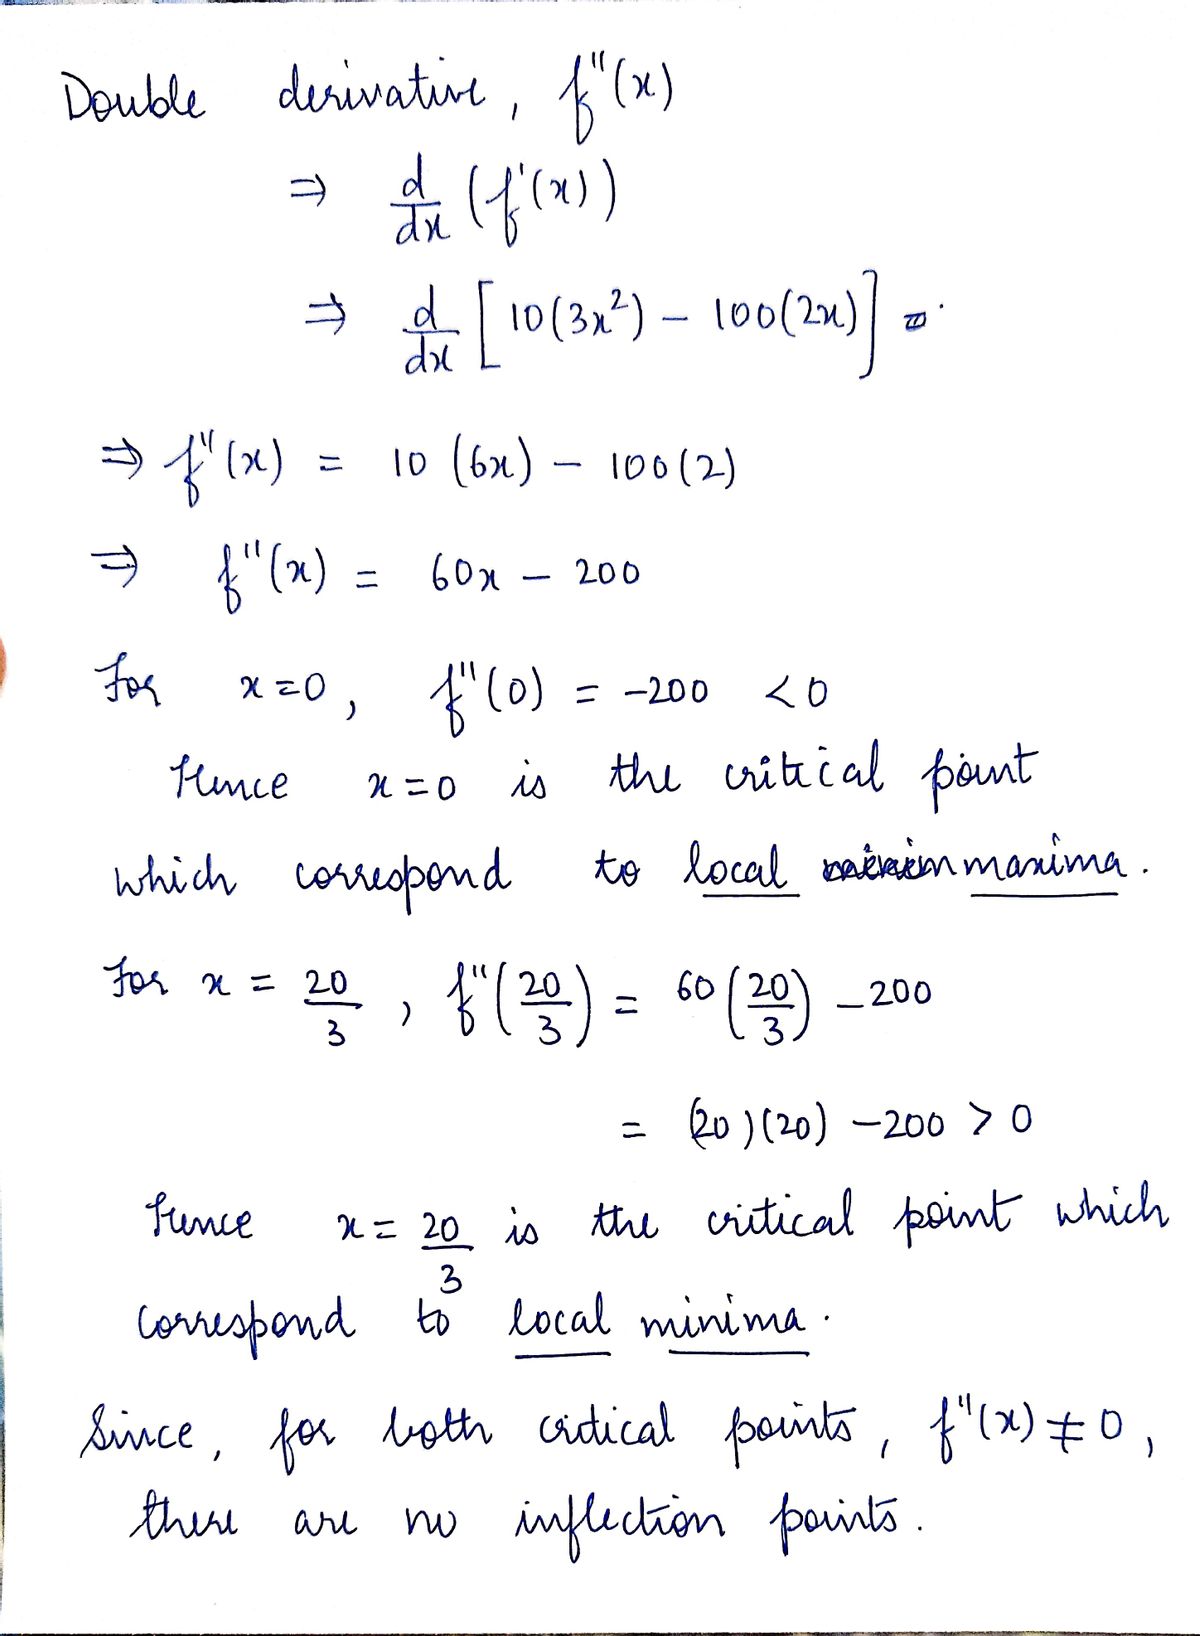 Double derivative, f"(x)
⇒ d/dx (f'(x))
⇒ d/dx [10(3x²) – 100(2x)]
⇒ f"(x) = 10 (6x) – 100(2)
⇒ f"(x) = 60x – 200
For x=0, f"(0) = -200 <0
Hence x=0 is the critical point
which correspond to local maxima.
For x = 20/3, f"(20/3) = 60(20/3) – 200
= (20)(20) – 200 > 0
Hence x = 20/3 is the critical point which
correspond to local minima.
Since, for both critical points, f"(x) ≠ 0,
there are no inflection points.